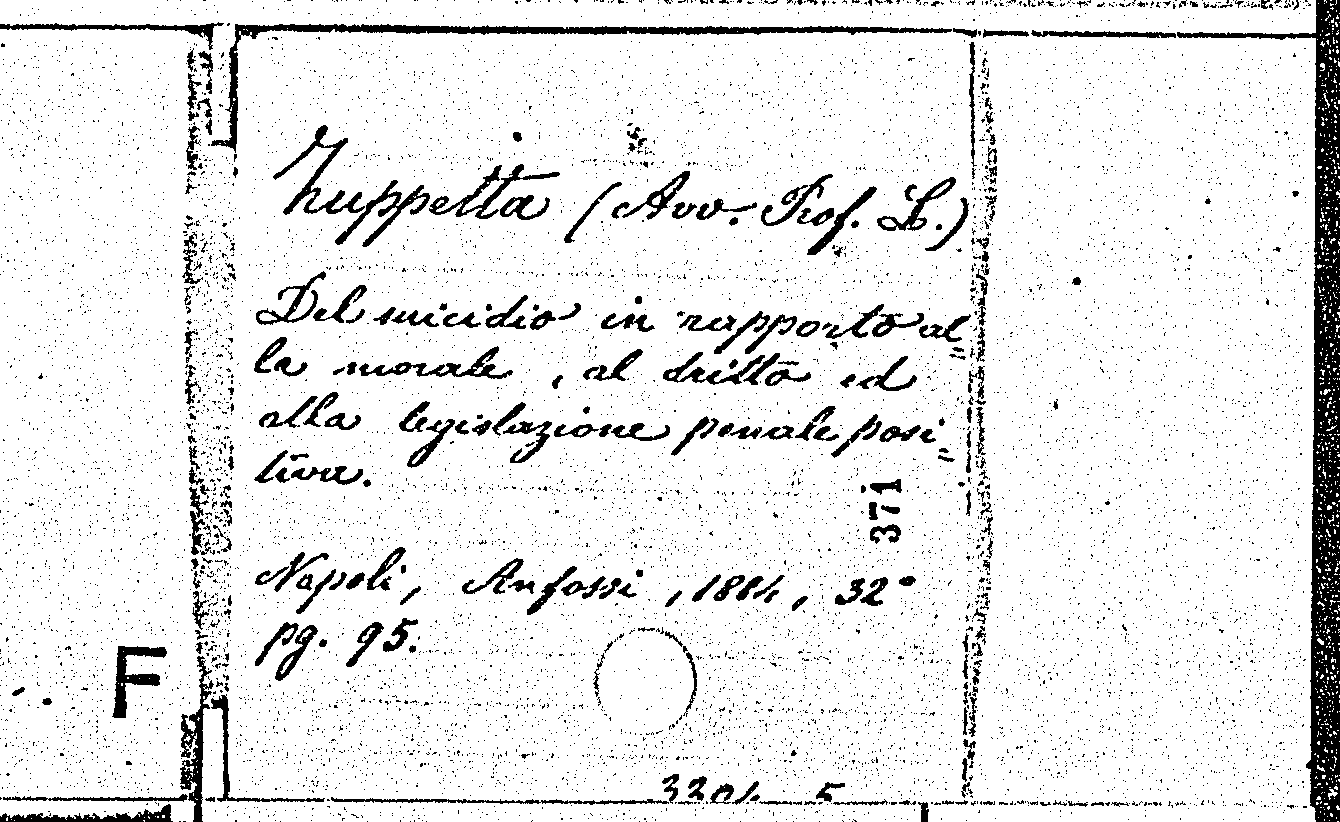 Zuppetta (Avv. Prof. L.)
Del suicidio in rapporto al=
la morale, al dritto ed
alla legislazione penale posi=
tiva.
371
Napoli, Anfossi, 1884, 32°
pg. 95.
F